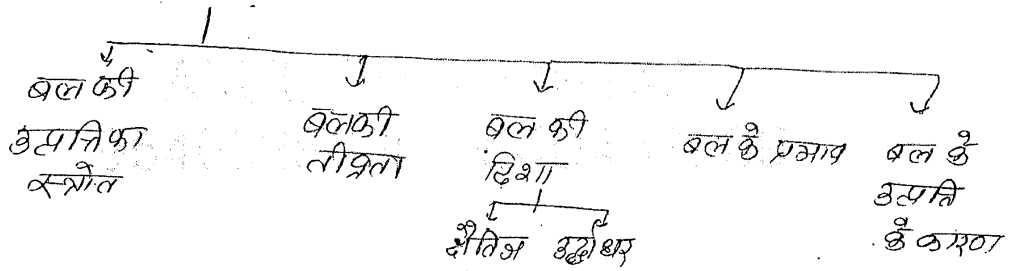 बल की
उत्पत्ति का
स्त्रोत
बल की
तीव्रता
बल की
दिशा
क्षैतिज उर्द्धाधर
बल के प्रभाव
बल के
उत्पत्ति
के कारण